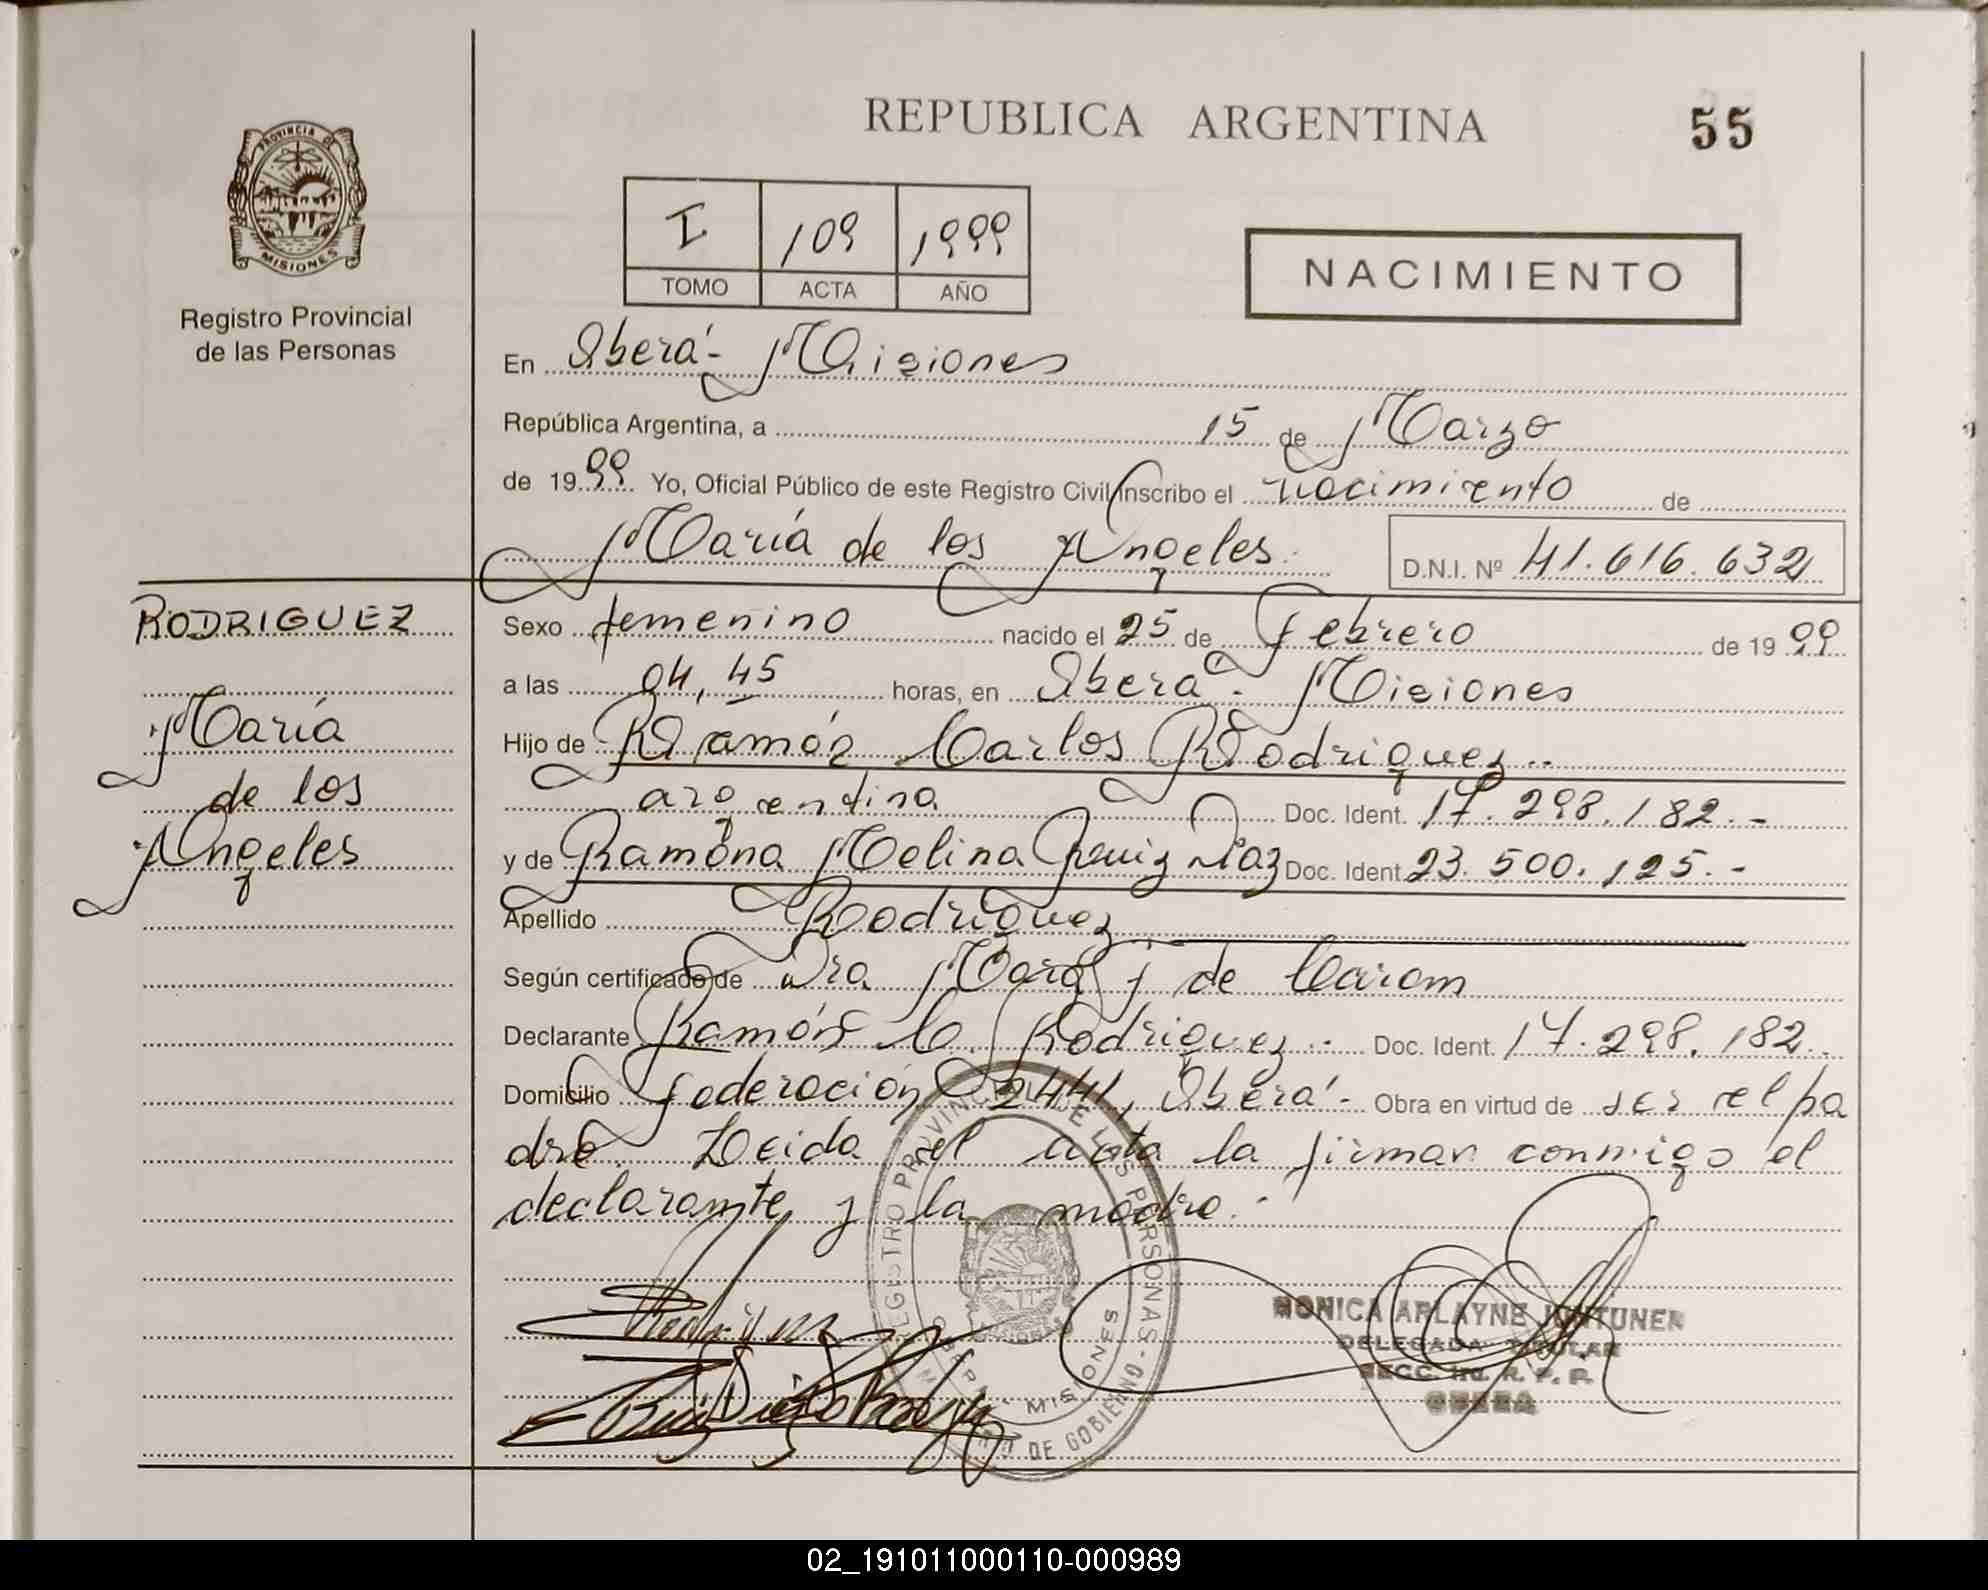 REPUBLICA ARGENTINA
55
PROVINCIA DE
MISIONES
Registro Provincial
de las Personas
I 109 1999
TOMO ACTA AÑO
NACIMIENTO
En Oberá - Misiones
República Argentina, a 15 de Marzo
de 1999 Yo, Oficial Público de este Registro Civil inscribo el nacimiento de
María de los Angeles. D.N.I. Nº 41.616.632
RODRIGUEZ
María
de los
Angeles
Sexo femenino nacido el 25 de Febrero de 1999
a las 04,45 horas, en Oberá - Misiones
Hijo de Ramón Carlos Rodriguez..
argentina Doc. Ident. 17.298.182.-
y de Ramona Melina Ruiz Diaz Doc. Ident. 23.500.125.-
Apellido Rodriguez
Según certificado de Dra de
Declarante Ramón C. Rodriguez.. Doc. Ident. 17.298.182..
Domicilio Federación 2441, Oberá - Obra en virtud de ser el pa
dre. Leida el acta la firman conmigo el
declarante y la madre.-
REGISTRO PROVINCIAL DE LAS PERSONAS - GOBIERNO
MISIONES
DE GOBIERNO
MONICA ARLAYNE JUNTUNEN
DELEGADA TITULAR
R. P. P.
OBERA
02_191011000110-000989